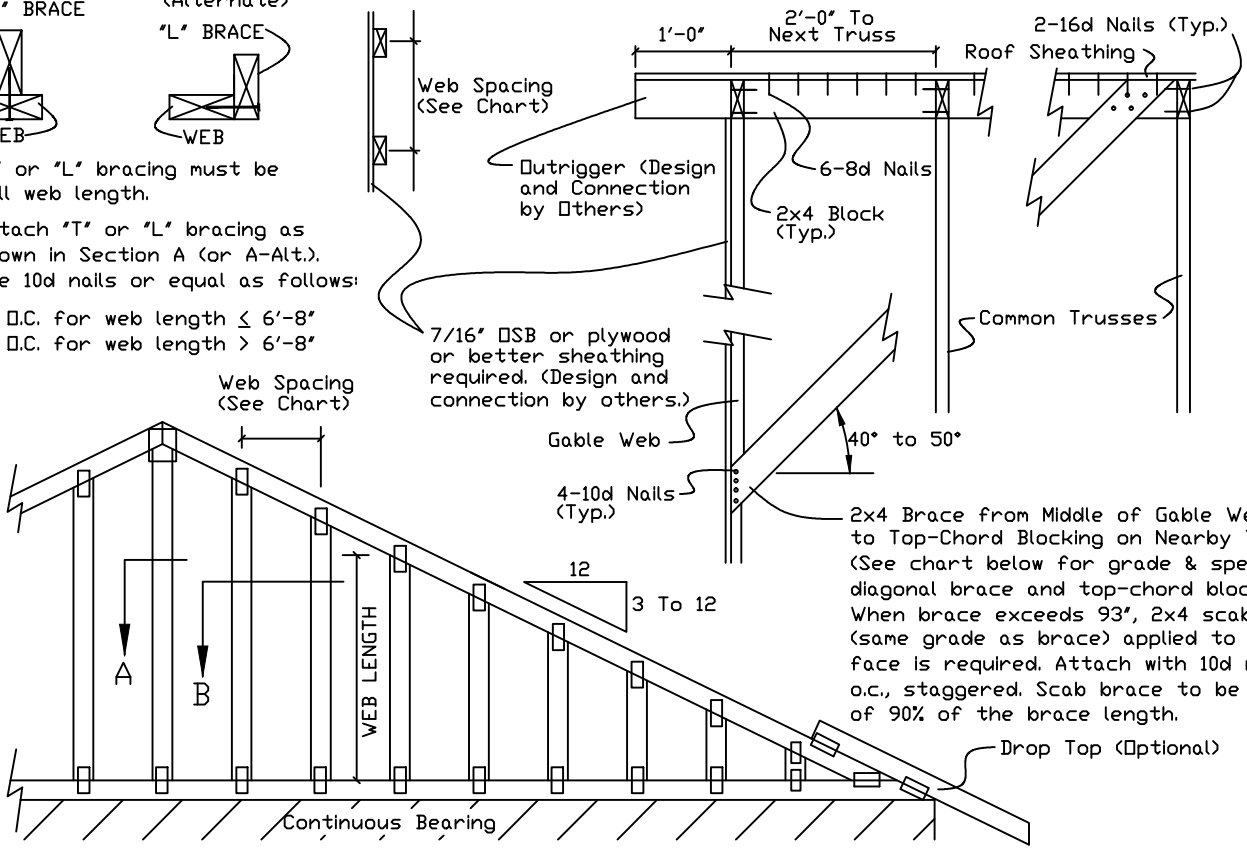 " BRACE
(Alternate)
"L" BRACE
WEB
" or "L" bracing must be
web length.
"T" or "L" bracing as
in Section A (or A-Alt.).
10d nails or equal as follows:
O.C. for web length ≤ 6'-8"
O.C. for web length > 6'-8"
Web Spacing
(See Chart)
1'-0"
2'-0" To
Next Truss
2-16d Nails (Typ.)
Roof Sheathing
Outrigger (Design
and Connection
by Others)
6-8d Nails
2x4 Block
(Typ.)
7/16" OSB or plywood
or better sheathing
required. (Design and
connection by others.)
Common Trusses
Gable Web
40° to 50°
4-10d Nails
(Typ.)
2x4 Brace from Middle of Gable
to Top-Chord Blocking on Nearby
(See chart below for grade &
diagonal brace and top-chord
When brace exceeds 93", 2x4 scab
(same grade as brace) applied to
face is required. Attach with 10d
o.c., staggered. Scab brace to be
of 90% of the brace length.
Web Spacing
(See Chart)
12
3 To 12
A
B
WEB LENGTH
Drop Top (Optional)
Continuous Bearing